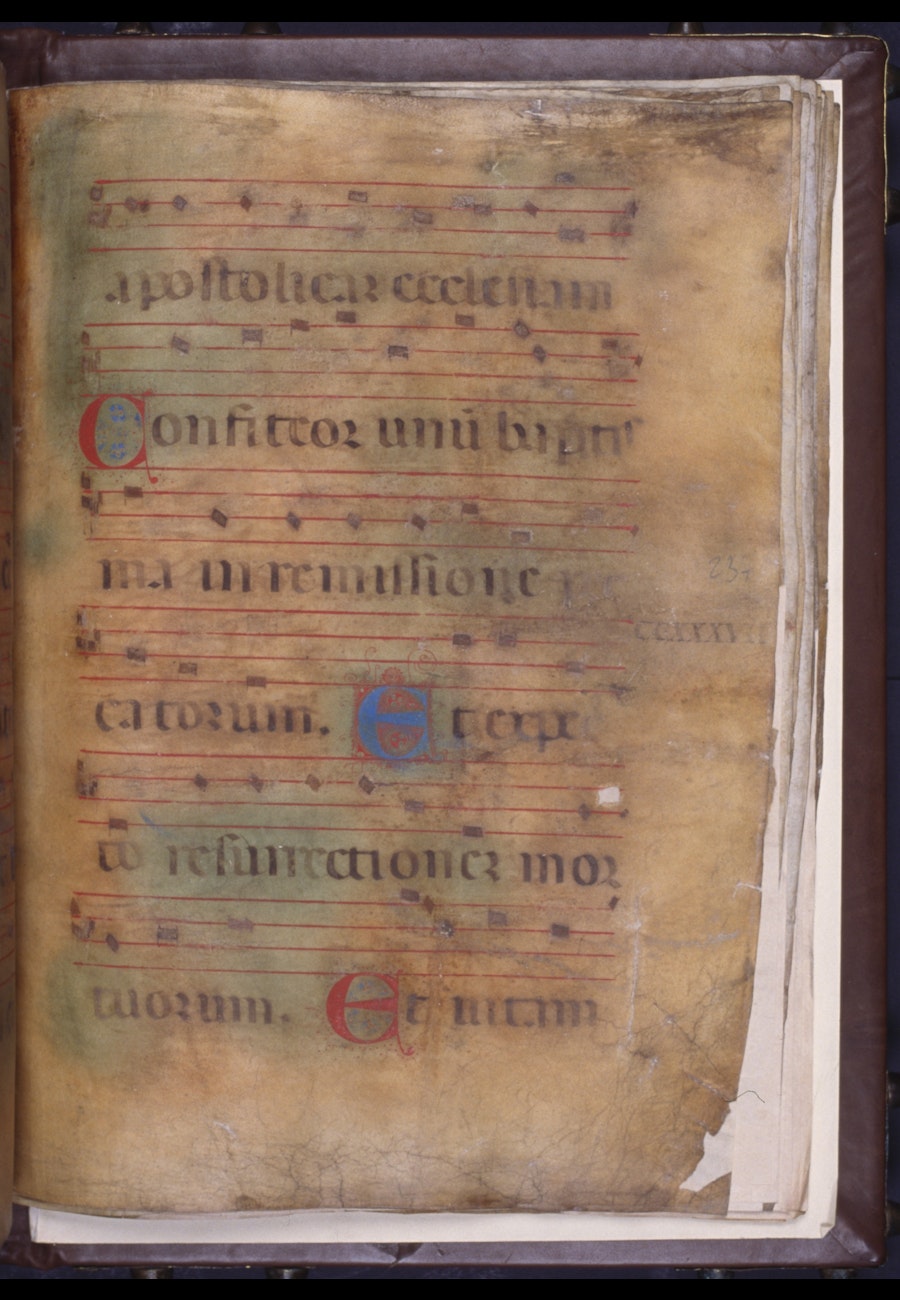 apostolicaz ecclesiam
Confiteor unū baptis
ma in remissione pec
237
ccxxxvii
catorum. Et expec
to resurrectionez mor
tuorum. Et uitam